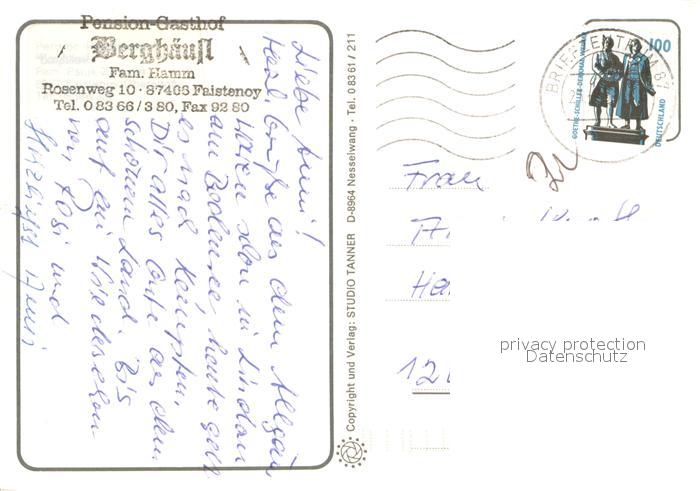 Pension-Gasthof
Berghäusl
Fam. Hamm
Rosenweg 10 · 87463 Faistenoy
Tel. 0 83 66/3 80, Fax 92 80
Liebe
Herzl. Grüße aus dem Allgäu
Waren schon in Lindau
am Bodensee, heute geht
es nach Kempten.
Dir alles Gute aus dem
schönen Land. Bis
auf ein Wiedersehen
Rosi und
Copyright und Verlag: STUDIO TANNER D-8964 Nesselwang · Tel. 0 83 61 / 211
BRIEFZENTRUM 87
100
GOETHE-SCHILLER-DENKMAL WEIMAR
DEUTSCHLAND
Frau
12
privacy protection
Datenschutz